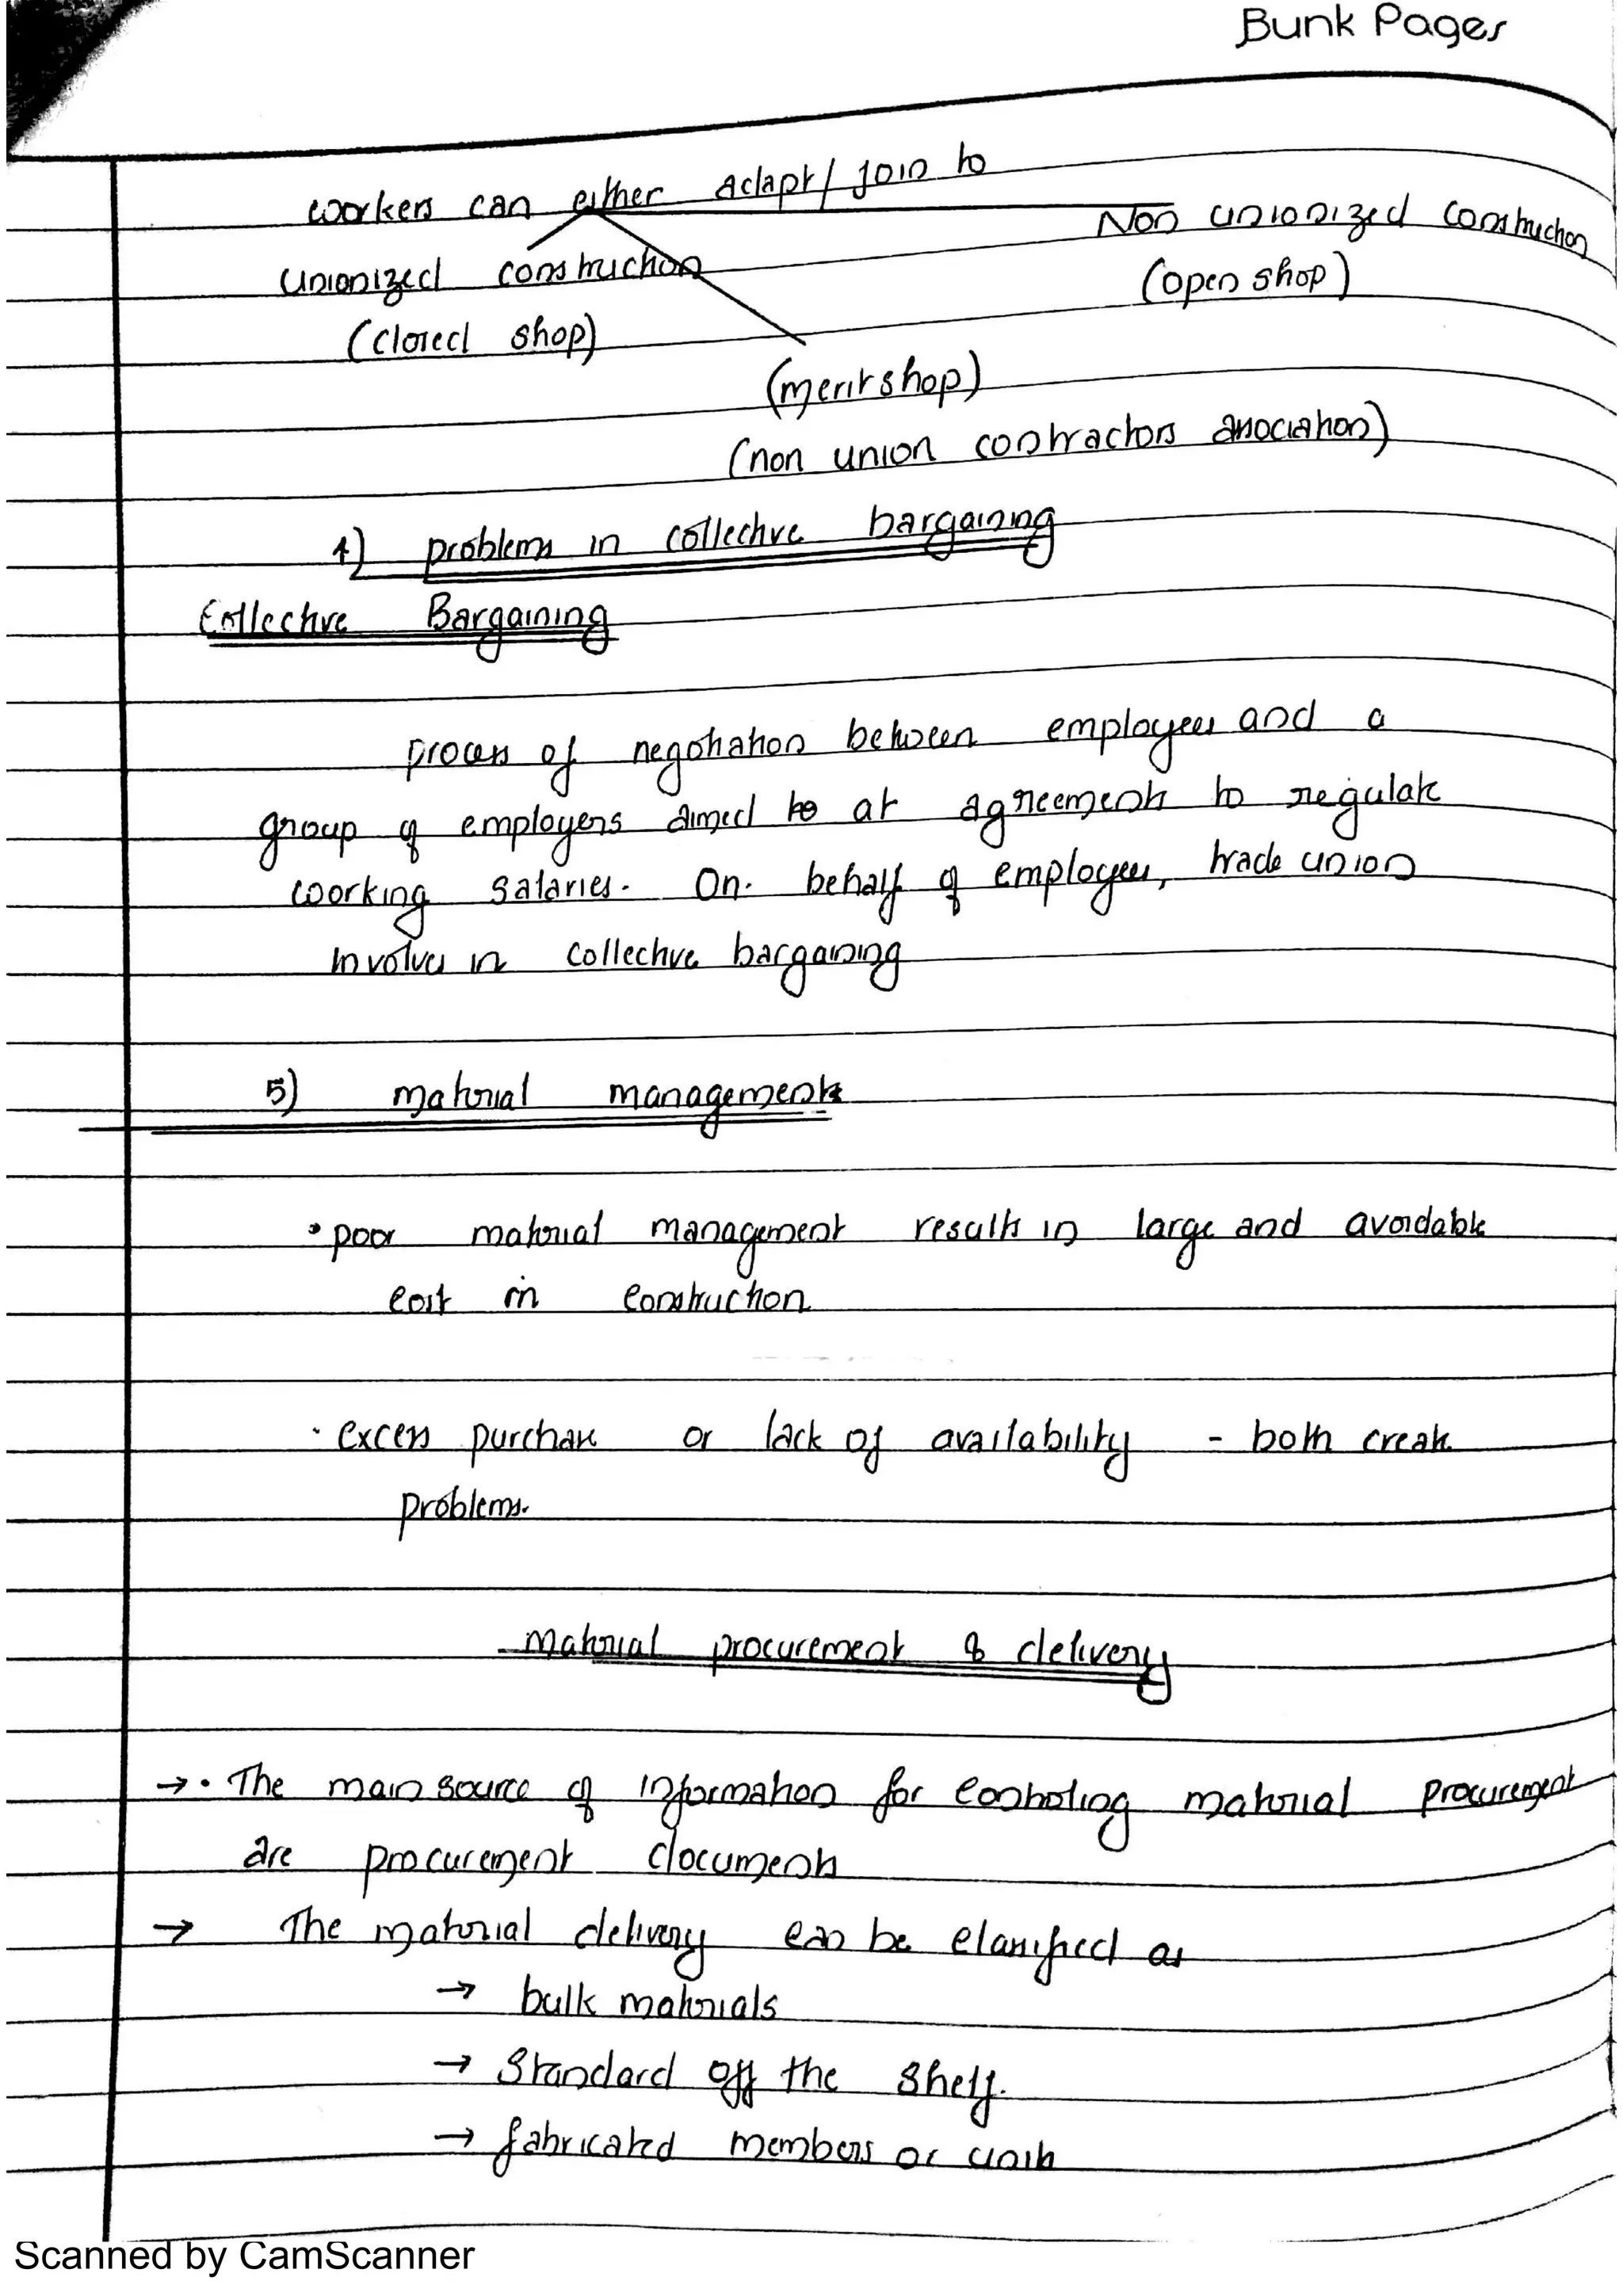 Bunk Pages
workers can either adapt/ join to
Non unionized construction
unionized construction
(open shop)
(closed shop)
(merit shop)
(non union contractors association)
4) problems in collective bargaining
Collective Bargaining
process of negotiation between employees and a
group of employers aimed to at agreements to regulate
working salaries. On. behalf of employees, trade union
involves in collective bargaining
5) material management
• poor material management results in large and avoidable
cost in construction
· excess purchase or lack of availability - both create
problems.
material procurement & delivery
→ • The main source of information for controling material procurement
are procurement documents
→ The material delivery can be classified as
→ bulk materials
→ Standard off the shelf.
→ fabricated members or units
Scanned by CamScanner